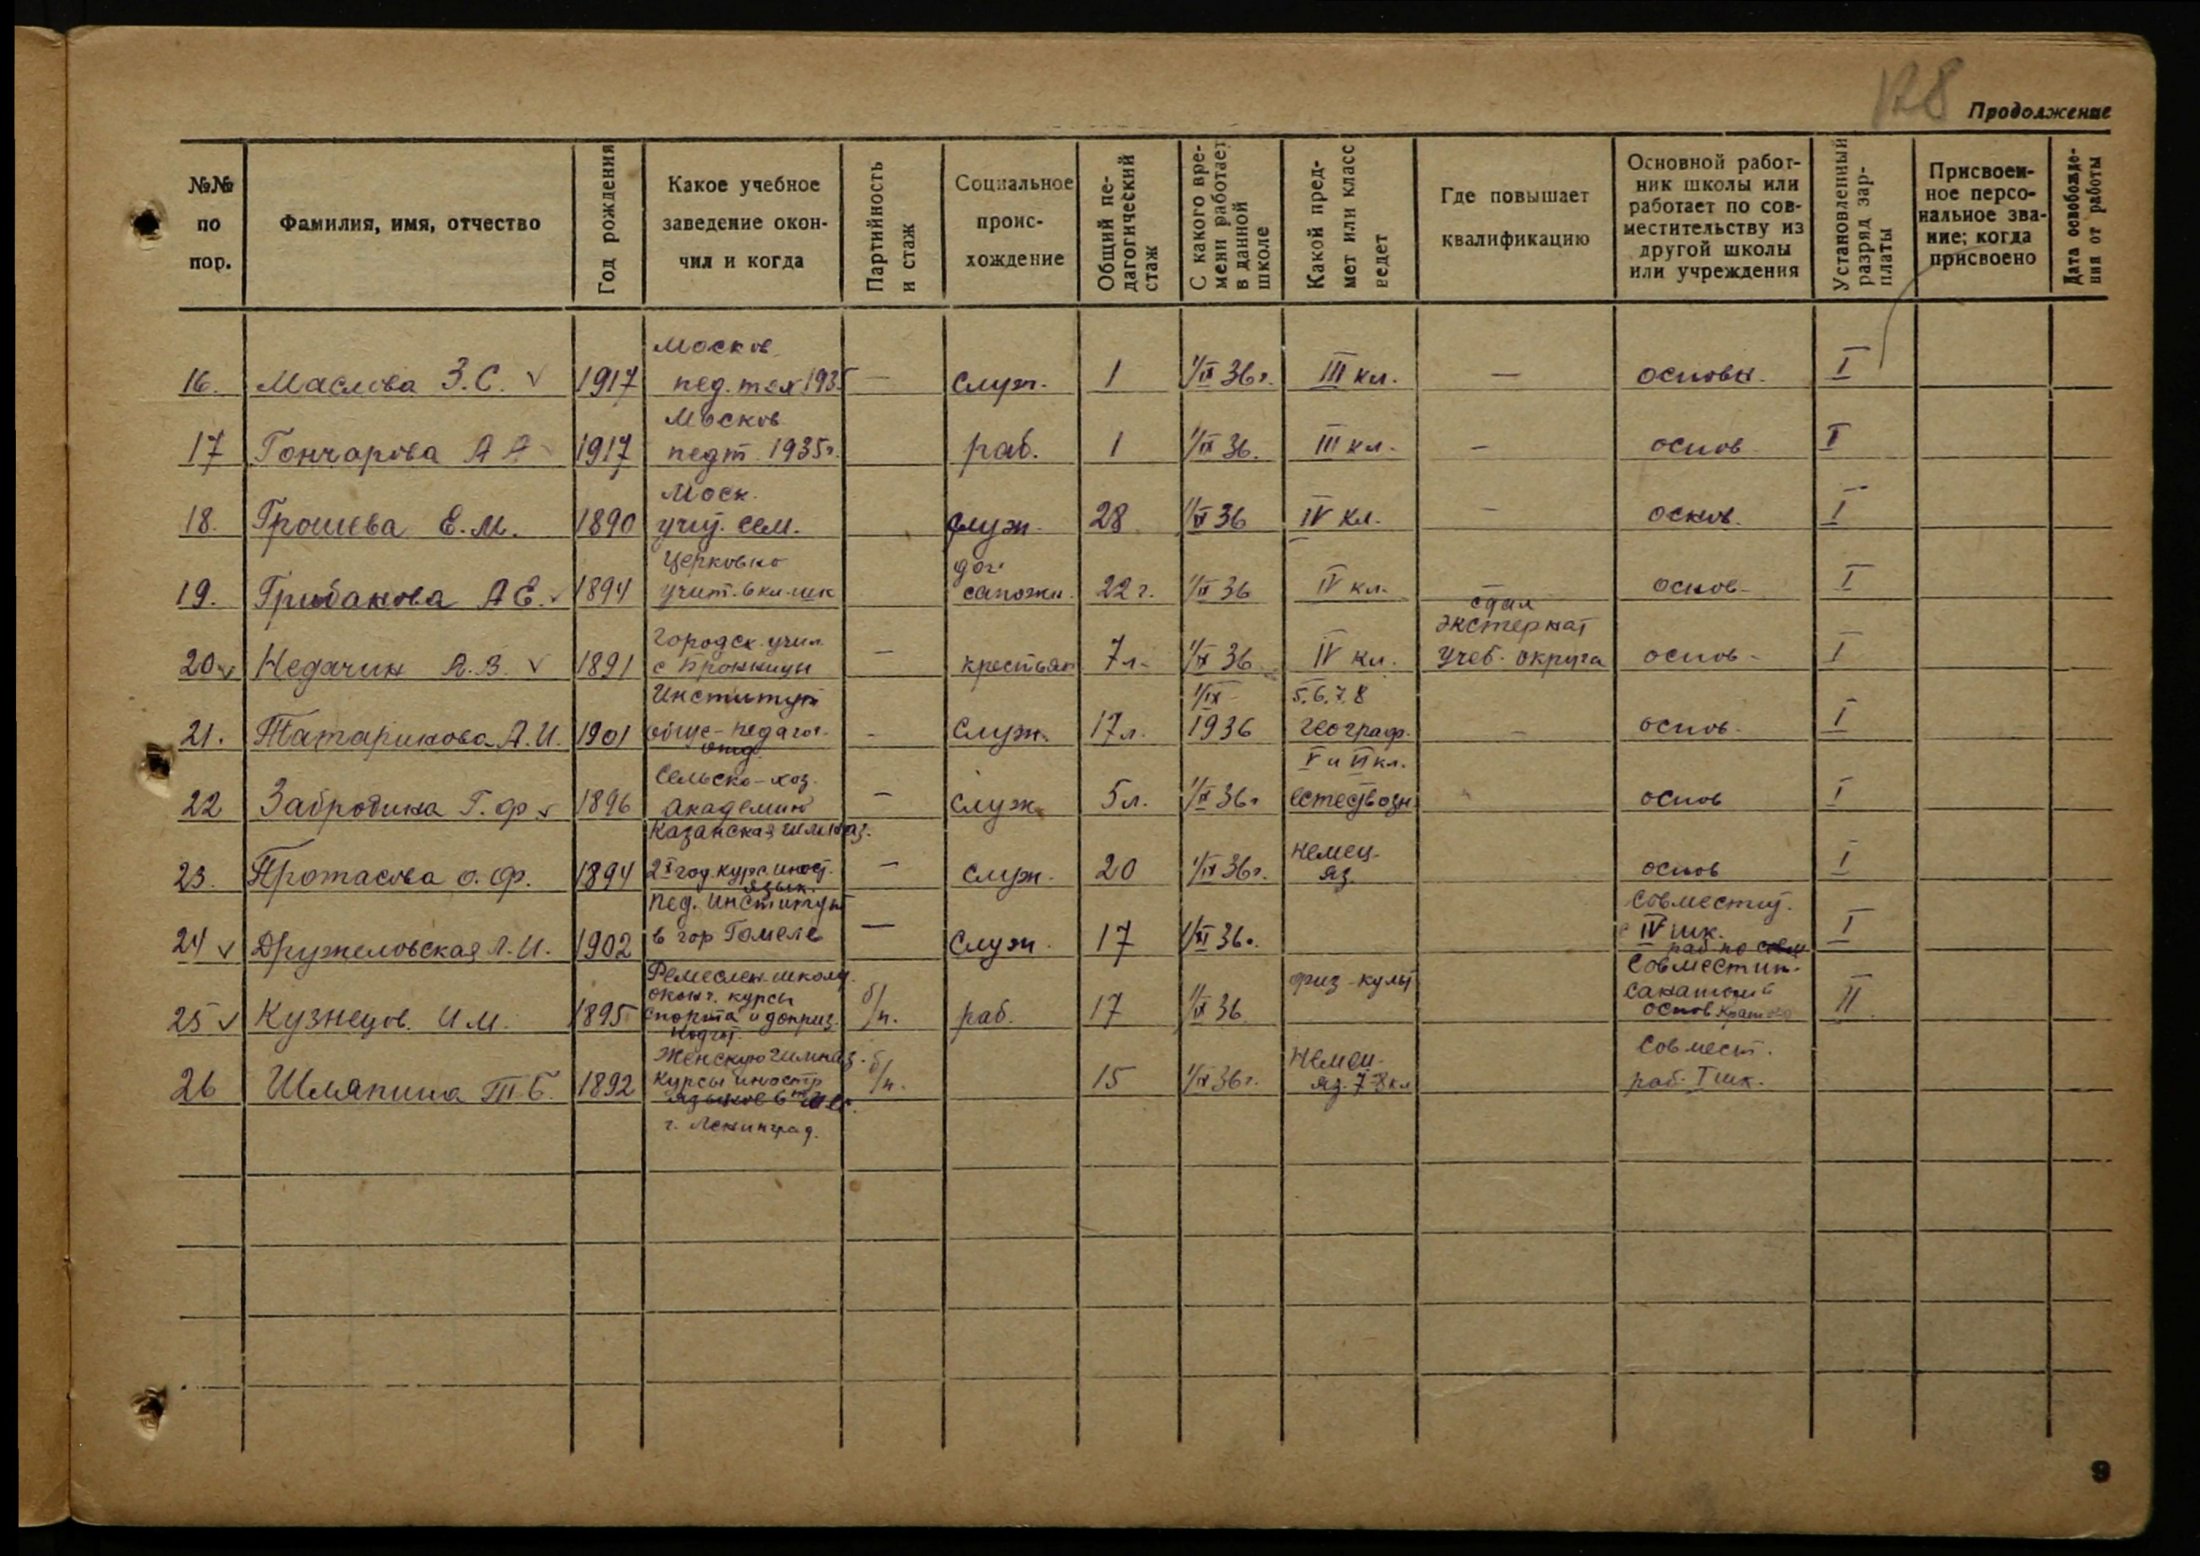 128
Продолжение
№№ по пор.
Фамилия, имя, отчество
Год рождения
Какое учебное заведение окончил и когда
Партийность и стаж
Социальное проис-хождение
Общий пе-дагогический стаж
С какого вре-мени работает в данной школе
Какой пред-мет или класс ведет
Где повышает квалификацию
Основной работ-ник школы или работает по сов-местительству из другой школы или учреждения
Установленный разряд зар-платы
Присвоен-ное персо-нальное зва-ние; когда присвоено
Дата освобожде-ния от работы
16. Маслова З.С. v 1917 Москов. пед. тех 1935 — служ. 1 1/IX 36г. III кл. — основн. I
17 Гончарова А А 1917 Москов педт. 1935г. раб. 1 1/IX 36. III кл. — основ I
18. Грошева Е.М. 1890 Моск. учит. сем. служ. 28 1/IX 36 IV кл. — основ. I
19. Грибакова А Е. v 1894 Церковно учит. 6 кл. шк доч. сапожн. 22 г. 1/IX 36 IV кл. основ I
20 v Недачин А.В. v 1891 Городск. учил. с Бронницы — крестьян 7 л. 1/IX 36 IV кл. сдал экстернат учеб. округа основ I
21. Татаринова А.И. 1901 Институт общ. педагог. отд. - служ. 17 л. 1/IX 1936 5.6.7.8 географ. — основ. I
22 Забродина Г.Ф. v 1896 Сельско-хоз. Академию — служ. 5 л. 1/IX 36г V и VI кл. естествозн основ I
23. Протасова О.Ф. 1894 Казанская гимназ. 2х год. курс. иност. язык. — служ. 20 1/IX 36г. немец. яз. основ I
24 v Дружеловская Л.И. 1902 пед. институт в гор Гомеле — служ. 17 1/XI 36г. Совместит. с IV шк. раб по совм I
25 v Кузнецов И М. 1895 Ремеслен. школу. оконч. курсы спорта и доприз. подгот. б/п. раб. 17 1/IX 36 физ-культ Совместит. санаторий основ II
26 Шляпина Т.Б. 1892 Женскую гимназ. курсы иностр языков в г. Ленинград. б/п. 15 1/IX 36г. Немец. яз. 7-8 кл Совмест. раб. I шк.
9